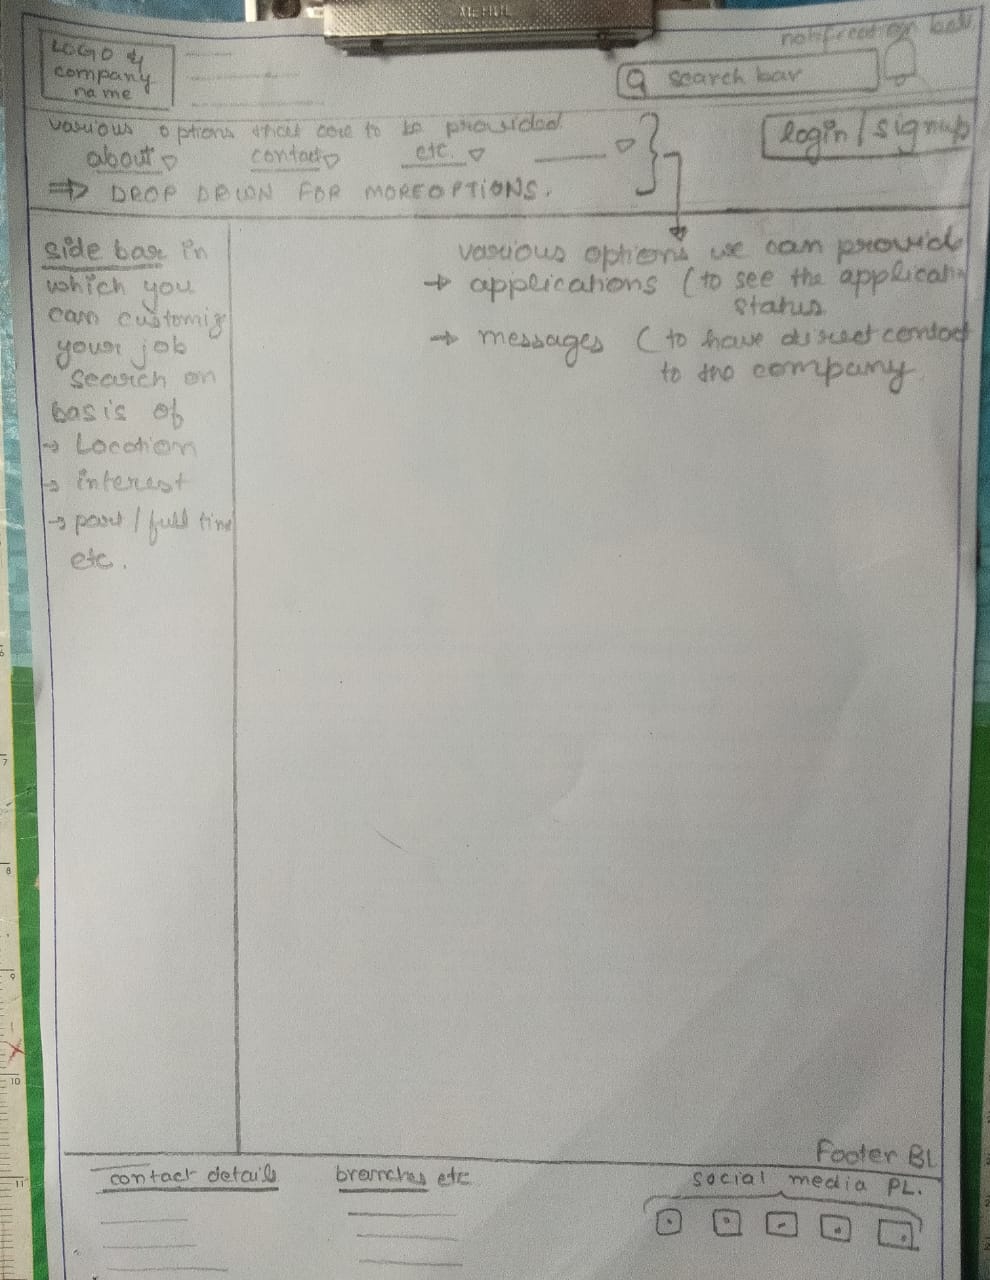 MEHUL
notification bell
LOGO &
company
name
search bar
login/signup
various options that are to be provided
about
contact
etc.
⇒ DROP DOWN FOR MORE OPTIONS.
side bar in
which you
can customiz
your job
search on
basis of
→ Location
→ interest
→ part/full time
etc.
various options we can provide
→ applications (to see the applicatin
status
→ messages (to have direct contact
to the company
Footer BL
contact details
branches etc
social media PL.